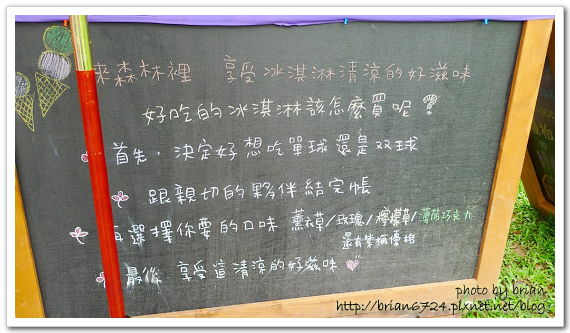 來森林裡 享受冰淇淋清涼的好滋味
好吃的冰淇淋該怎麼買呢?
首先,決定好想吃單球還是双球
跟親切的夥伴結完帳
再選擇你要的口味 薰衣草/玫瑰/檸檬草/薄荷巧克力
還有紫梅優格
最後 享受這清涼的好滋味
photo by brian
http://brian6724.pixnet.net/blog